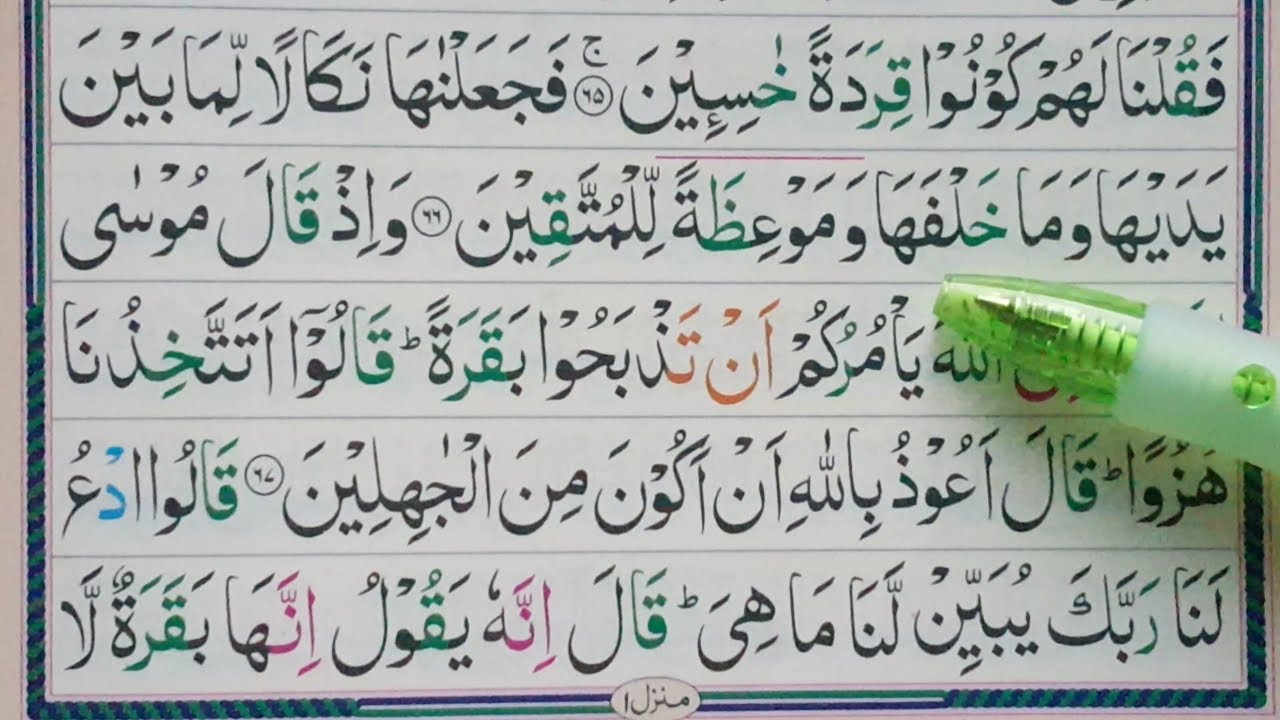 فَقُلْنَا لَهُمْ كُوْنُوْا قِرَدَةً خٰسِـِٕيْنَ ۚ‏ ﴿۶۵﴾ فَجَعَلْنٰهَا نَكَالًا لِّمَا بَيْنَ
يَدَيْهَا وَمَا خَلْفَهَا وَمَوْعِظَةً لِّلْمُتَّقِيْنَ ﴿۶۶﴾ وَاِذْ قَالَ مُوْسٰى
اللّٰهَ يَاْمُرُكُمْ اَنْ تَذْبَحُوْا بَقَرَةً ؕ قَالُوْٓا اَتَتَّخِذُنَا
هُزُوًا ؕ قَالَ اَعُوْذُ بِاللّٰهِ اَنْ اَكُوْنَ مِنَ الْجٰهِلِيْنَ ﴿۶۷﴾ قَالُوا ادْعُ
لَنَا رَبَّكَ يُبَيِّنْ لَّنَا مَا هِىَ ؕ قَالَ اِنَّهٗ يَقُوْلُ اِنَّهَا بَقَرَةٌ لَّا
منزل ۱